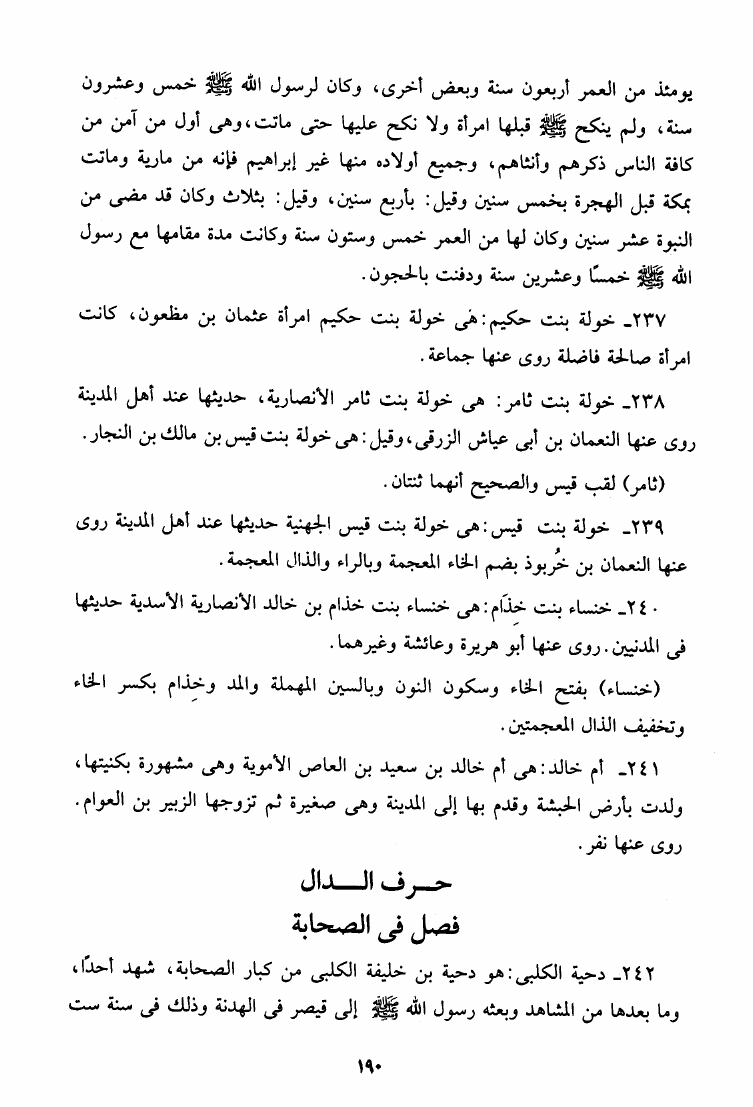 يومئذ من العمر أربعون سنة وبعض أخرى، وكان لرسول الله ﷺ خمس وعشرون
سنة، ولم ينكح ﷺ قبلها امرأة ولا نكح عليها حتى ماتت،وهى أول من آمن من
كافة الناس ذكرهم وأنثاهم، وجميع أولاده منها غير إبراهيم فإنه من مارية وماتت
بمكة قبل الهجرة بخمس سنين وقيل: بأربع سنين، وقيل: بثلاث وكان قد مضى من
النبوة عشر سنين وكان لها من العمر خمس وستون سنة وكانت مدة مقامها مع رسول
الله ﷺ خمسًا وعشرين سنة ودفنت بالحجون.
٢٣٧ـ خولة بنت حكيم:هى خولة بنت حكيم امرأة عثمان بن مظعون، كانت
امرأة صالحة فاضلة روى عنها جماعة.
٢٣٨ـ خولة بنت ثامر: هى خولة بنت ثامر الأنصارية، حديثها عند أهل المدينة
روى عنها النعمان بن أبى عياش الزرقى،وقيل:هى خولة بنت قيس بن مالك بن النجار.
(ثامر) لقب قيس والصحيح أنهما ثنتان.
٢٣٩ـ خولة بنت قيس:هى خولة بنت قيس الجهنية حديثها عند أهل المدينة روى
عنها النعمان بن خُربوذ بضم الخاء المعجمة وبالراء والذال المعجمة.
٢٤٠ـ خنساء بنت خِذَام:هى خنساء بنت خذام بن خالد الأنصارية الأسدية حديثها
فى المدنيين.روى عنها أبو هريرة وعائشة وغيرهما.
(خنساء) بفتح الخاء وسكون النون وبالسين المهملة والمد وخِذام بكسر الخاء
وتخفيف الذال المعجمتين.
٢٤١ـ أم خالد:هى أم خالد بن سعيد بن العاص الأموية وهى مشهورة بكنيتها،
ولدت بأرض الحبشة وقدم بها إلى المدينة وهى صغيرة ثم تزوجها الزبير بن العوام.
روى عنها نفر.
حـــرف الـــدال
فصل فى الصحابة
٢٤٢ـ دحية الكلبى:هو دحية بن خليفة الكلبى من كبار الصحابة، شهد أحدًا،
وما بعدها من المشاهد وبعثه رسول الله ﷺ إلى قيصر فى الهدنة وذلك فى سنة ست
١٩٠